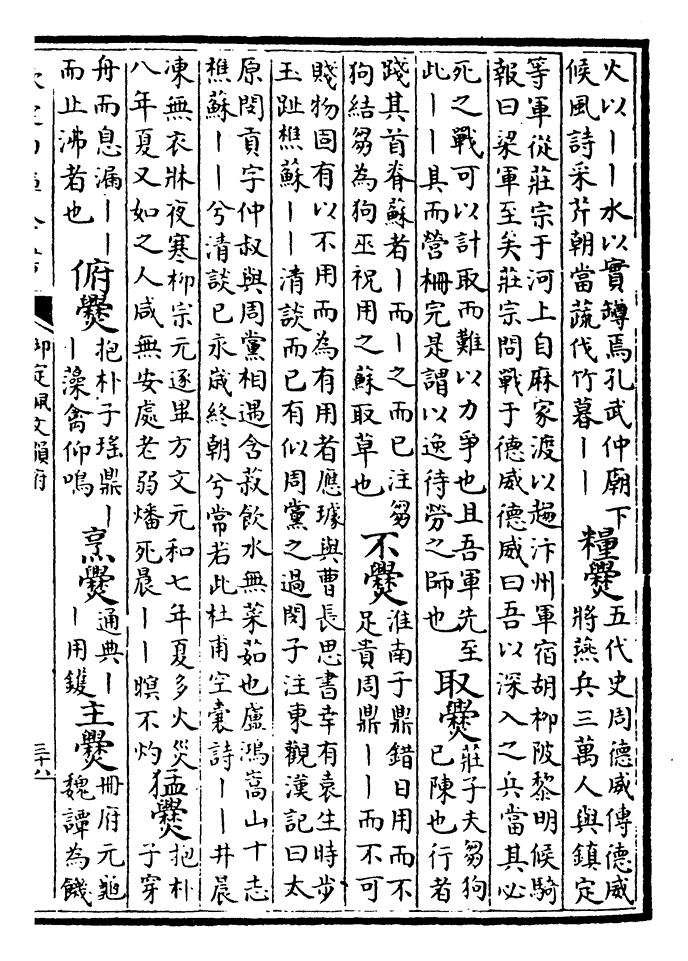 火以丨丨水以實鐏焉孔武仲廟下
候風詩采芹朝當蔬伐竹暮丨丨
糧爨
五代史周德威傳德威
將燕兵三萬人與鎮定
等軍從莊宗于河上自麻家渡以趨汴州軍宿胡柳陂黎明候騎
報曰梁軍至矣莊宗問戰于德威德威曰吾以深入之兵當其必
死之戰可以計取而難以力爭也且吾軍先至
此丨丨具而營柵完是謂以逸待勞之師也
取爨
莊子夫芻狗
已陳也行者
踐其首脊蘇者丨而丨之而已注芻
狗結芻為狗巫祝用之蘇取草也
不爨
淮南子鼎錯日用而不
足貴周鼎丨丨而不可
賤物固有以不用而為有用者應璩與曹長思書幸有袁生時步
玉趾樵蘇丨丨清談而已有似周黨之過閔子注東觀漢記曰太
原閔貢字仲叔與周黨相遇含菽飲水無菜茹也盧鴻嵩山十志
樵蘇丨丨兮清談已永歲終朝兮常若此杜甫空囊詩丨丨井晨
凍無衣牀夜寒柳宗元逐畢方文元和七年夏多火災
八年夏又如之人咸無安處老弱燔死晨丨丨暝不灼
猛爨
抱朴
子穿
舟而息漏丨丨
而止沸者也
俯爨
抱朴子瑤鼎丨
丨藻禽仰鳴
烹爨
通典丨
丨用鑊
主爨
冊府元龜
魏譚為饑
御定佩文韻府
三十八